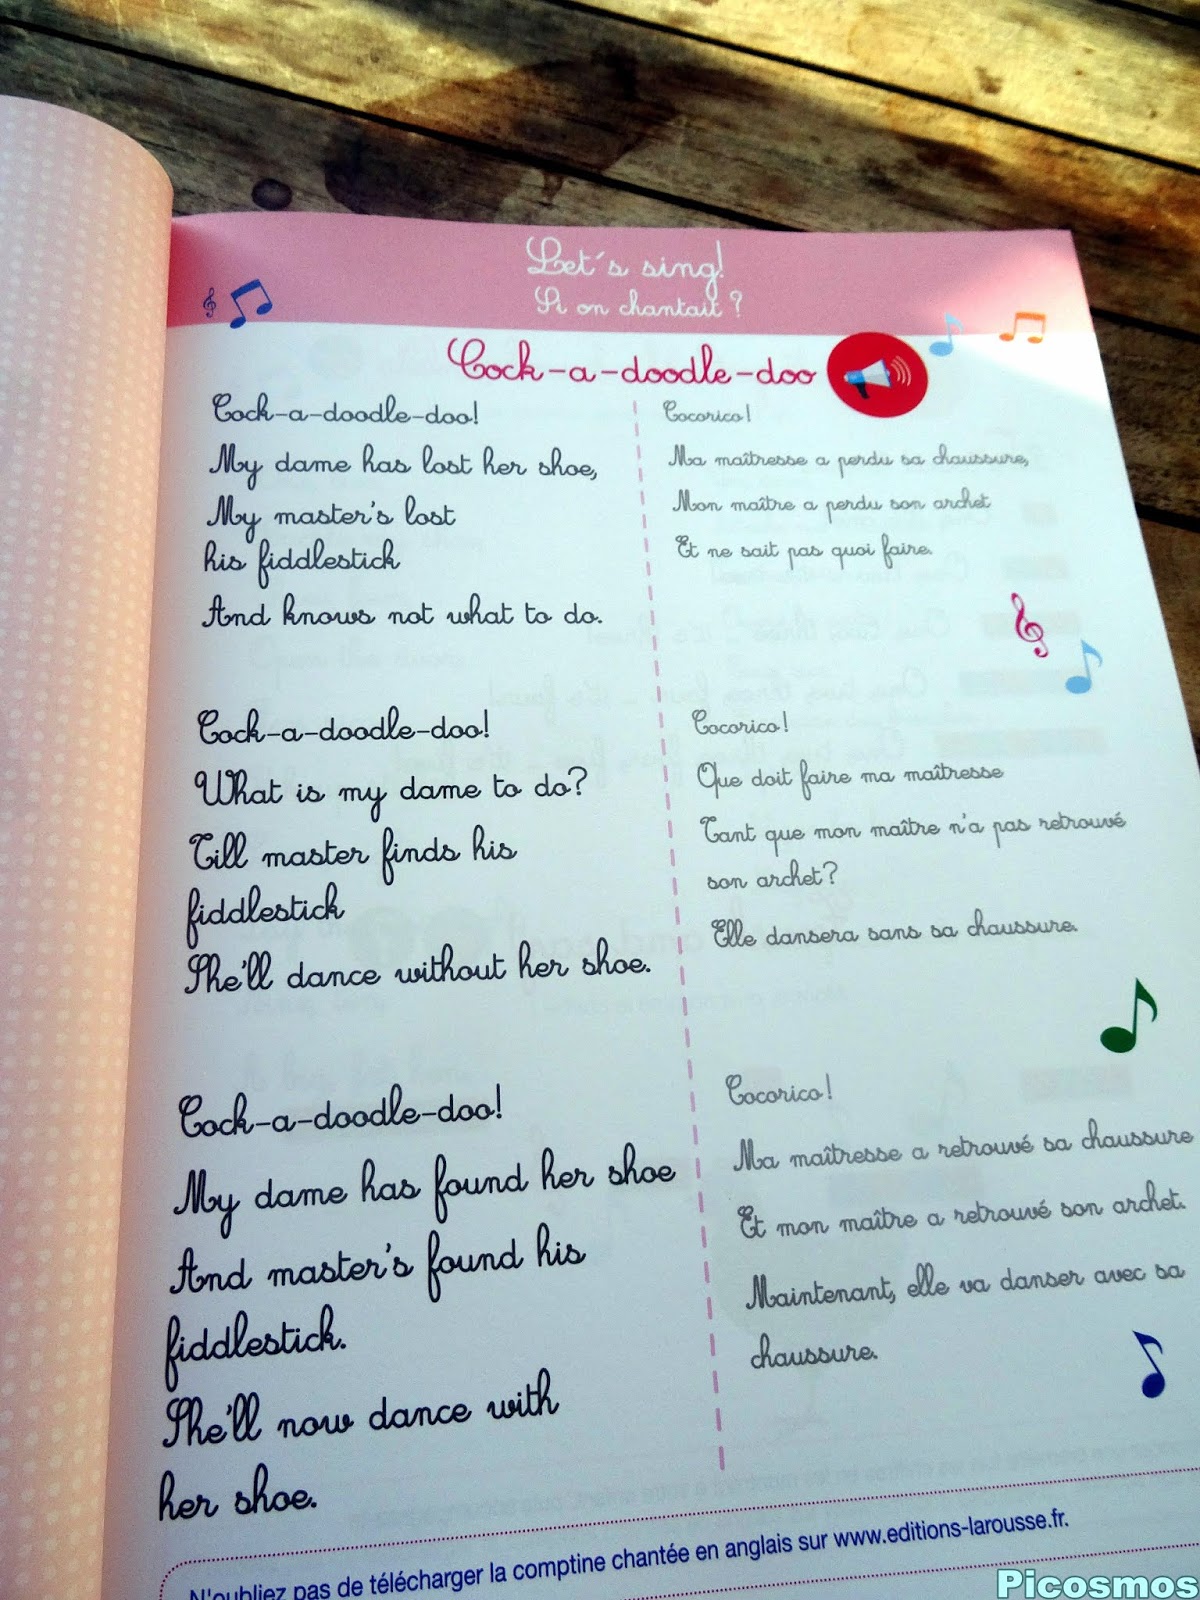 Let's sing!
Si on chantait ?
Cock-a-doodle-doo
Cock-a-doodle-doo!
My dame has lost her shoe,
My master's lost
his fiddlestick
And knows not what to do.
Cock-a-doodle-doo!
What is my dame to do?
Till master finds his
fiddlestick
She'll dance without her shoe.
Cock-a-doodle-doo!
My dame has found her shoe
And master's found his
fiddlestick.
She'll now dance with
her shoe.
Cocorico!
Ma maîtresse a perdu sa chaussure,
Mon maître a perdu son archet
Et ne sait pas quoi faire.
Cocorico!
Que doit faire ma maîtresse
Tant que mon maître n'a pas retrouvé
son archet?
Elle dansera sans sa chaussure.
Cocorico!
Ma maîtresse a retrouvé sa chaussure
Et mon maître a retrouvé son archet.
Maintenant, elle va danser avec sa
chaussure.
N'oubliez pas de télécharger la comptine chantée en anglais sur www.editions-larousse.fr.
Picosmos